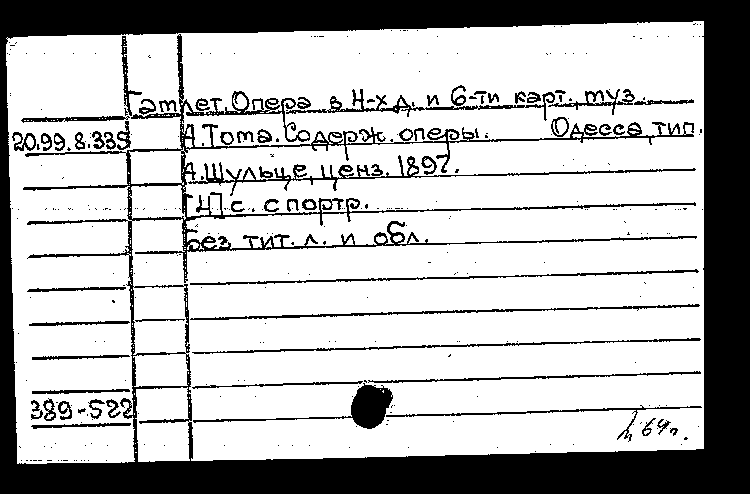 Гамлет. Опера в 4-х д. и 6-ти карт., муз.
20.99.8.335 А.Тома. Содерж. оперы. Одесса, тип.
А.Шульце, ценз. 1897.
[4] с. с портр.
Без тит. л. и обл.
389-522